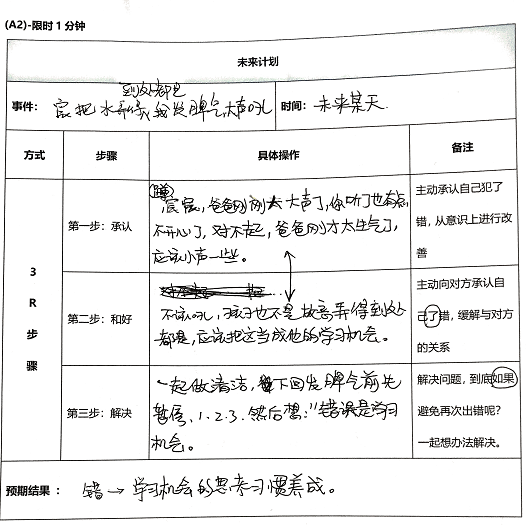 (A2)-限时1分钟
未来计划
到处都是
事件： 宸把水弄得，我发脾气，大声吼 时间：未来某天
方式 步骤 具体操作 备注
3R步骤
第一步：承认
宸宸，爸爸刚刚太大声了，你听了也有点
不开心了，对不起，爸爸刚才太生气了，
应该小声一些。
主动承认自己犯了
错，从意识上进行改
善
第二步：和好
不该吼，孩子也不是故意弄得到处
都是，应该把这当成他的学习机会。
主动向对方承认自
己了错，缓解与对方
的关系
第三步：解决
一起做清洁，下回发脾气前先
暂停，1.2.3.然后想："错误是学习
机会。
解决问题，到底如果
避免再次出错呢？
一起想办法解决。
预期结果： 错→学习机会的思考习惯养成。